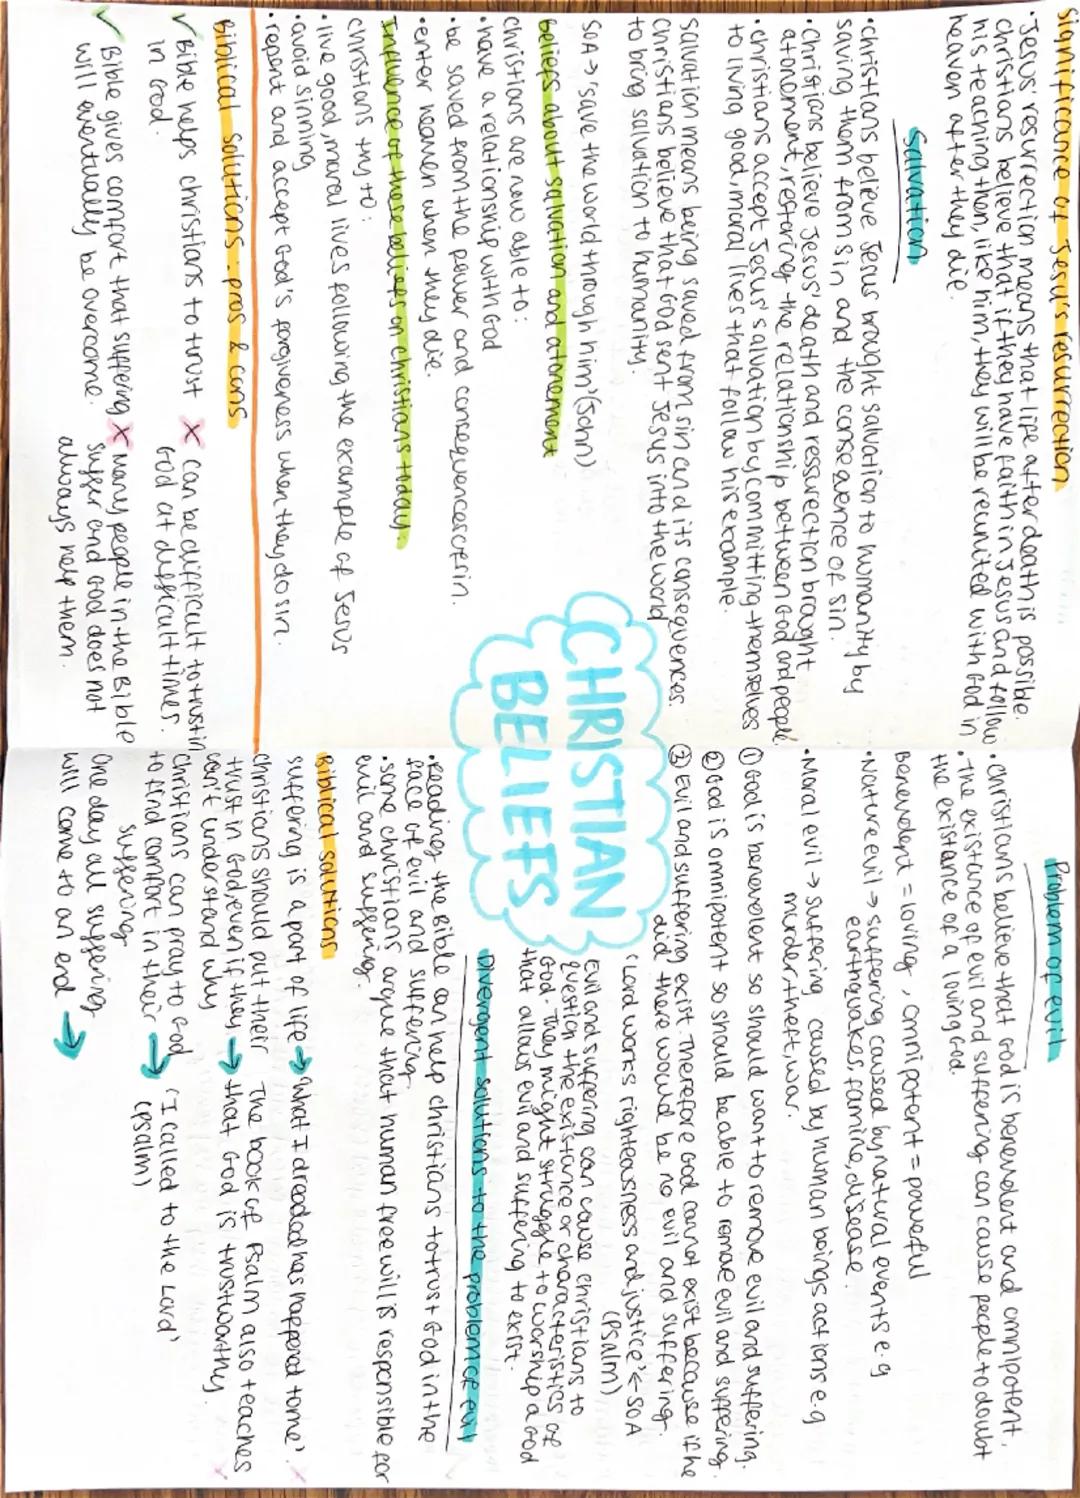 Significance of Jesu's resurrection
• Jesus resurrection means that life after death is possible.
Christians believe that if they have faith in Jesus and follow
his teaching then, like him, they will be reunited with God in
heaven after they die.
Salvation
• Christians believe Jesus brought salvation to humanity by
saving them from sin, and the consequence of sin.
• Christians believe Jesus' death and ressurection brought
atonement, restoring the relationship between God and people.
• Christians accept Jesus' salvation by committing themselves
to living good, moral lives that follow his example.
Salvation means being saved from sin and its consequences.
Christians believe that God sent Jesus into the world
to bring salvation to humanity.
SOA → 'save the world through him' (John)
Beliefs about salvation and atonement
Christians are now able to:
• have a relationship with God
• be saved from the power and consequences of sin.
• enter heaven when they die.
Influence of these beliefs on christians today.
Christians try to:
• live good, moral lives following the example of Jesus
• avoid sinning
• repent and accept God's forgiveness when they do sin.
Biblical solutions: pros & cons
✓ Bible helps christians to trust
in God.
✓ Bible gives comfort that suffering
will eventually be overcome.
✗ Can be difficult to trust in
God at difficult times.
✗ Many people in the Bible
suffer and God does not
always help them.
CHRISTIAN
BELIEFS
Problem of evil
• Christians believe that God is benevolent and omnipotent.
• The existance of evil and suffering can cause people to doubt
the existance of a loving God.
Benevolent = loving, omnipotent = powerful
• Nature evil → suffering caused by natural events e.g
earthquakes, famine, disease.
• Moral evil → suffering caused by human beings actions e.g
murder, theft, war.
① God is benevolent so should want to remove evil and suffering.
② God is omnipotent so should be able to remove evil and suffering.
③ Evil and suffering exist. Therefore God cannot exist because if he
did there would be no evil and suffering.
'Lord works righteousness and justice' ← SOA
(Psalm)
Evil and suffering can cause christians to
question the existance or characteristics of
God. They might struggle to worship a God
that allows evil and suffering to exist.
Divergent solutions to the problem of evil
• Reading the Bible can help christians to trust God in the
face of evil and suffering.
• Some christians argue that human free will is responsible for
evil and suffering.
Biblical solutions
suffering is a part of life → 'What I dreaded has happend to me'.
Christians should put their
trust in God, even if they →
can't understand why
The book of Psalm also teaches
that God is trustworthy.
Christians can pray to God
to find comfort in their →
suffering
'I called to the Lord'
(Psalm)
One day all suffering
will come to an end →